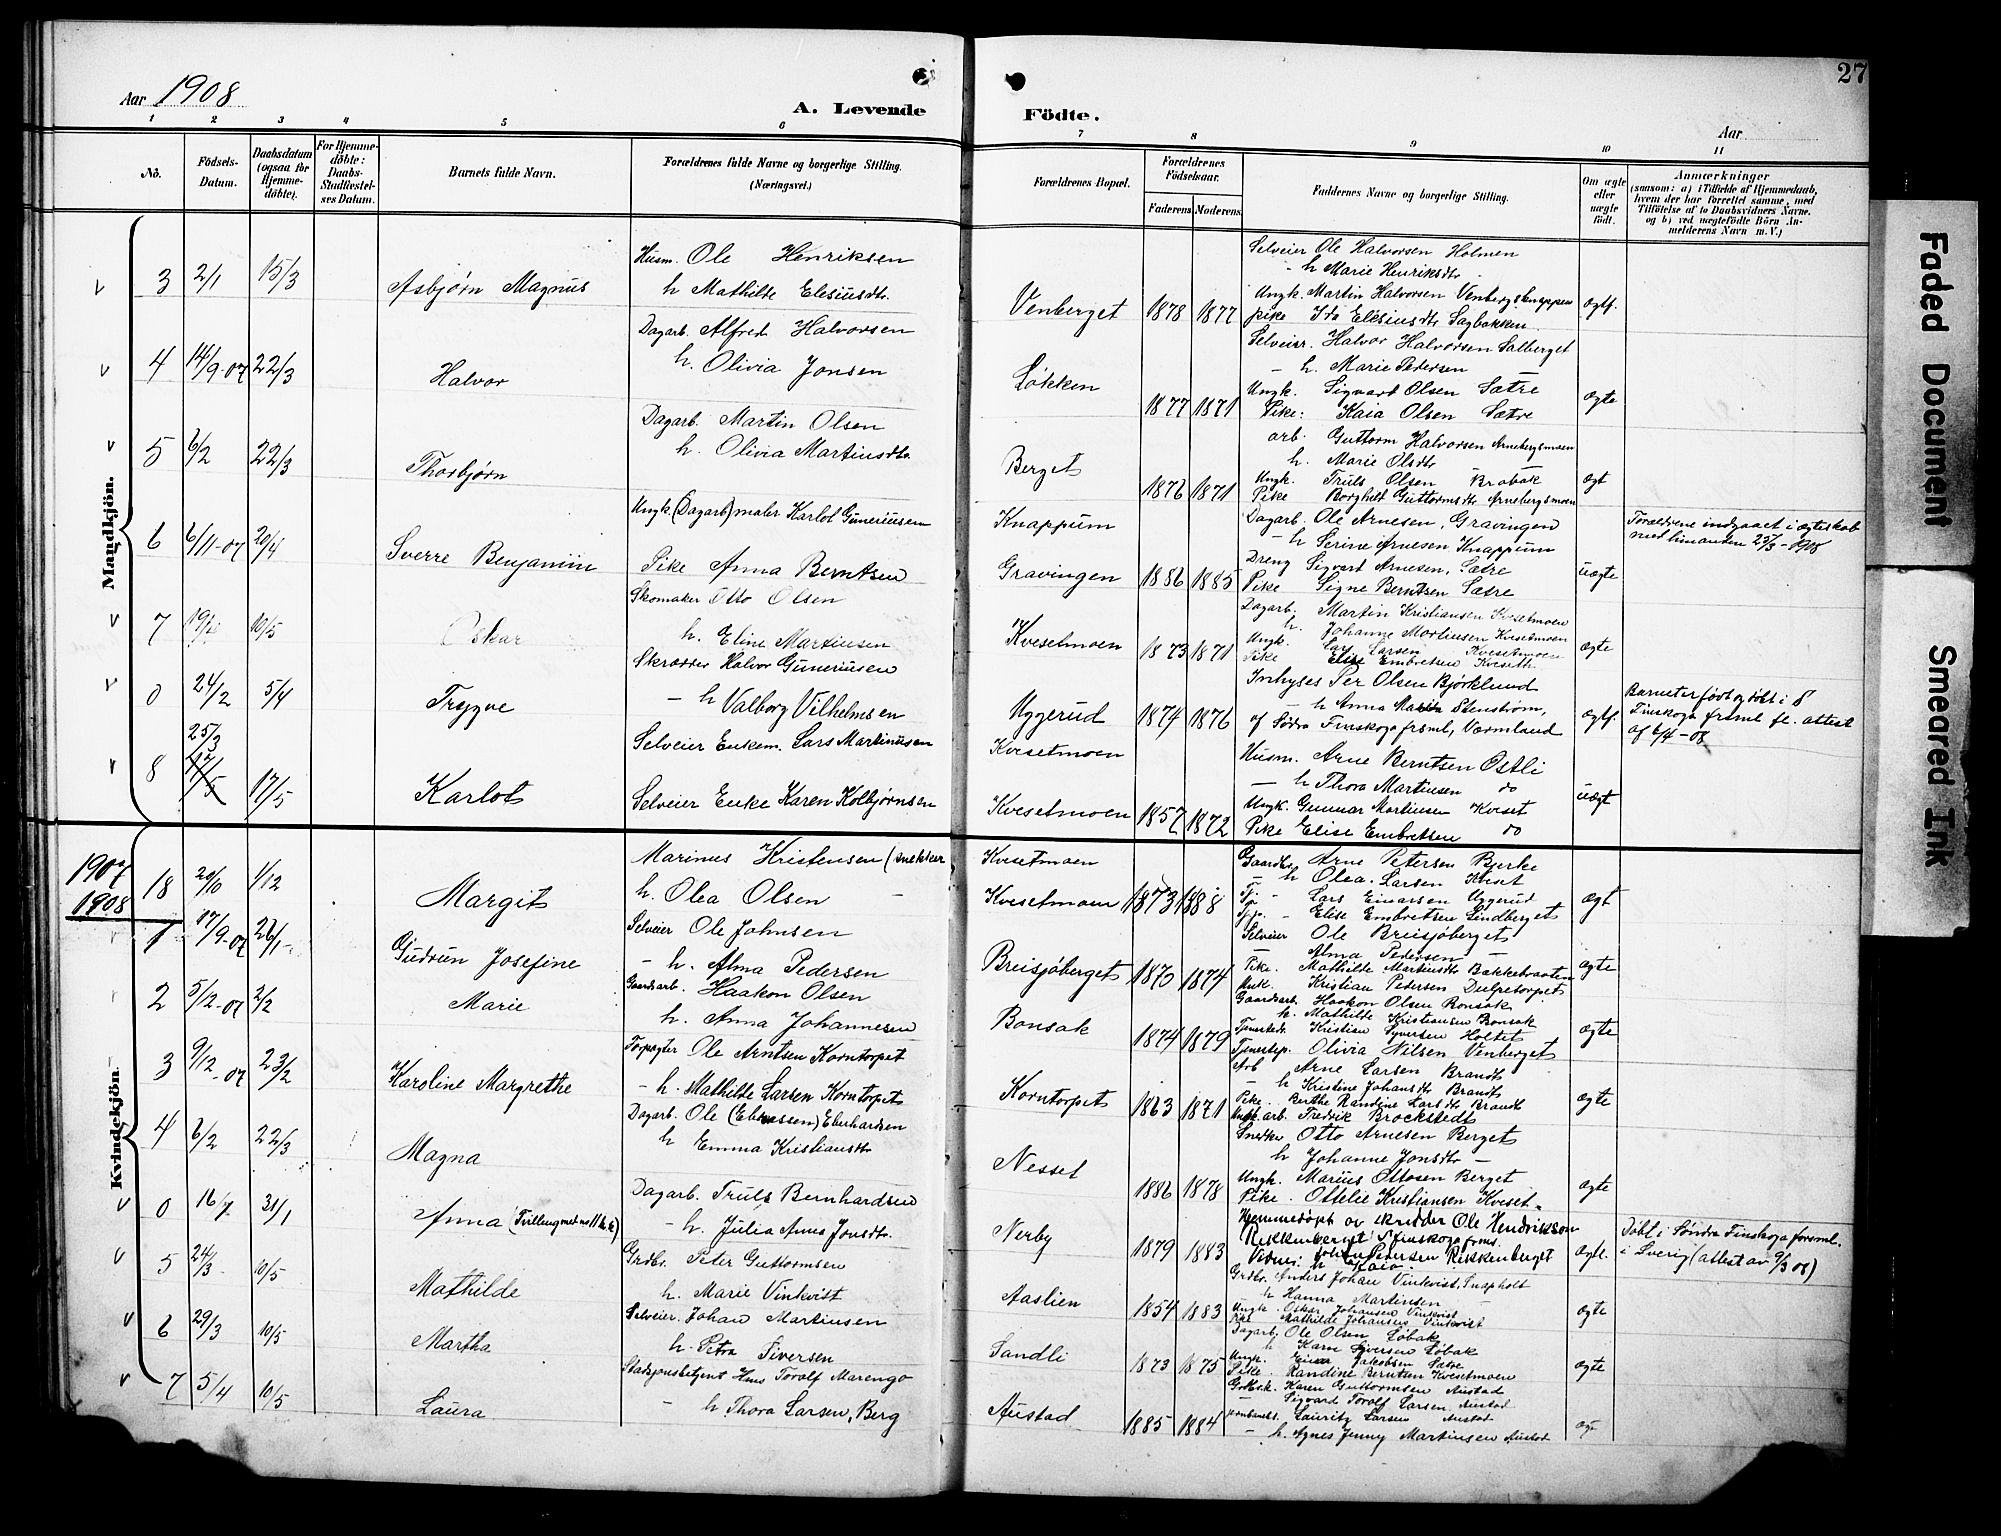 27
Aar 1908
A. Levende
Födte.
Aar
1 2 3 4 5 6 7 8 9 10 11
No.
Födsels-Datum.
Daabsdatum (ogsaa for Hjemme-döbte).
For Hjemme-döbte: Daabs-Stadfæstel-ses Datum.
Barnets fulde Navn.
Forældrenes fulde Navne og borgerlige Stilling. (Næringsvei.)
Forældrenes Bopæl.
Forældrenes Födselsaar.
Faderens. Moderens.
Faddernes Navne og borgerlige Stilling.
Om ægte eller uægte född.
Anmærkninger
(saasom: a) i Tilfælde af Hjemmedaab, hvem der har forrettet samme, med Tilföielse af to Daabsvidners Navne. og b) ved uægtefödte Börn An-melderens Navn m. V.)
Mandkjön.
v 3 2/1 15/3 Asbjørn Magnus
Husm. Ole Henriksen
h Mathilde Elesiusdtr.
Venberget 1878 1877
Selveier Ole Halvorsen Holmen
- h Marie Henriksdtr
Ungk. Martin Halvorsen Venbergsknappen
pike Ida Elesiusdtr Sagbakken
ægtf.
v 4 14/9-07 22/3 Halvor
Dagarb. Alfred Halvorsen
h. Olivia Jonsen
Løkken 1877 1871
Selveier. Halvor Halvorsen Salberget
- h. Marie Pedersen
Ungk. Sigvart Olsen Sætre
Pike: Kaia Olsen Sætre
ægte
v 5 6/2 22/3 Thorbjørn
Dagarb. Martin Olsen
h. Olivia Martinsdtr
Berget 1876 1871
arb. Guttorm Halvorsen Arnebergsmoen
h. Marie Olsdtr
Ungk. Truls Olsen Brobak
Pike Borghild Guttormsdtr Arnebergsmoen
ægt
v 6 6/11-07 20/4 Sverre Benjamin
Ungk. (Dagarb) maler Karlot Guneriusen
Pike Anna Berntsen
Knappum
Gravingen 1886 1885
Dagarb. Ole Arnesen, Gravingen
- h Serine Arnesen Knappum
Dreng Sigvard Arnesen, Sætre
Pike Signe Berntsen Sætre
uægte
Forældrene indgaaet i ægteskab
med hinanden 25/3-1908
v 7 10/5 Oskar
Skomaker Otto Olsen
h. Eline Martinsen
Kvesetmoen 1873 1871
Dagarb. Martin Kristiansen Kvesetmoen
h. Johanne Martinsen Kvesetmoen
Ungk. Lars Larsen Kvesetmoen
Pike Elise Embretsen Kveseth
ægte
v 0 24/2 5/4 Trygve
Skrædder Halvor Guneriusen
- h Valborg Vilhelmsen
Uggerud 1874 1876
Inhyses Per Olsen Bjørklund
- h Anna Maria Stenström,
af Södra Finskoga försml, Værmland
ægtf
Barnet er født og døbt i S
Finskoga frsml fl. attest
af 6/4-08
v 8 25/3 17/5 Karlot
Selveier Enkem. Lars Martinusen
Selveier Enke Karen Kolbjørnsen
Kvesetmoen
Kvesetmoen 1857 1872
Husm. Arne Berntsen Ostli
- h Thora Martinsen do
Ungk. Gunnar Martinsen Kveset
Pike Elise Embretsen do
uægt
Kvindekjön.
1907
18 20/10 1/12 Margit
Marinus Kristensen (snekker
h. Olea Olsen -
Kvesetmoen
Kvesetmoen 1873
Gaardbr. Arne Petersen Bjerke
- h Olea Larsen Kveset
Tj. - Lars Einarsen Uggerud
Tjp. - Elise Embretsen Lindberget
ægt
1908
1 17/9-07 26/1 Gudrun Josefine
Selveier Ole Johnsen
- h. Alma Pedersen
Breisjøberget 1870 1874
Selveier Ole Breisjøberget
Alma Pedersen -
Pike. Mathilde Martinsdtr Bakkebraaten
Unk. Kristian Pedersen Dulpetorpet
ægte
2 5/12-07 2/2 Marie
Gaardsarb. Haakon Olsen
h. Anna Johannesen
Bonsak 1874 1879
Gaardsarb. Haakon Olsen Bonsak
h. Mathilde Kristiansen Bonsak
Tjenestedr. Kristian Syversen Holtet
Tjenestep. Olivia Nilsen Venberget
ægte
3 9/12-07 23/2 Karoline Margrethe
Forpagter Ole Arntsen Korntorpet
- h. Mathilde Larsen Korntorpet
Korntorpet 1863 1871
Arb Arne Larsen Brandt
h Kristine Johansdtr Brandt
Pike. Berthe Randine Larsdtr Brandt
Ungk. arb. Fredrik Brockstedt
ægte
4 6/2 22/3 Magna
Dagarb. Ole Eberhardsen
h Emma Kristiansdtr
Nesset 1886 1878
Snedker Otto Arnesen Berget
h Johanne Jonsdtr -
Ungk. Marius Ottosen Berget
Pike. Ottelie Kristiansen Kveset
ægte
v 0 31/1 Anna (Tvilling med no 11 m.k.)
Dagarb. Truls Bernhardsen
- h. Julia Anna Jonsdtr.
Nerby 1879 1883
Hjemmedøpt av skredder Ole Hendrikson
Rikkenberget S Finskoga frsml
Vidner: Johan Petersen Rikkenberget
h Kaia
ægtf.
Døbt i Søndra Finskoga forsml.
i Sverig (attest av 9/3 08)
v 5 24/3 10/5 Mathilde
Grdbr. Peter Guttormsen
h. Marie Vinkvist
Aaslien 1854 1883
Grdbr. Anders Johan Vinkvist, Snapholt
h Hanna Martinsen -
Ungk. Oskar Johansen Vinkvist
Pike Mathilde Johansens Vinkvist
ægte
v 6 29/3 10/5 Martha
Selveier. Johan Martinsen
h. Petra Siversen
Sandli 1873 1875
Dagarb. Ole Olsen Løbak
h Karn Siversen Løbak
Ungk. Einar Jakobsen Sætre
Pike. Randine Berntsen Kvesetmoen
ægte
v 7 5/4 10/5 Laura
Stadsjonsbetjent Hans Torolf Marengo
- h Thora Larsen, Berg
Austad 1885 1884
Grdbrsk. Karen Guttormsen Austad
- Sigvard Torolf Larsen Austad
Jernbanebt. Lauritz Larsen Austad
- h. Agnes Jenny Martinsen Austad
Faded Document
Smeared Ink